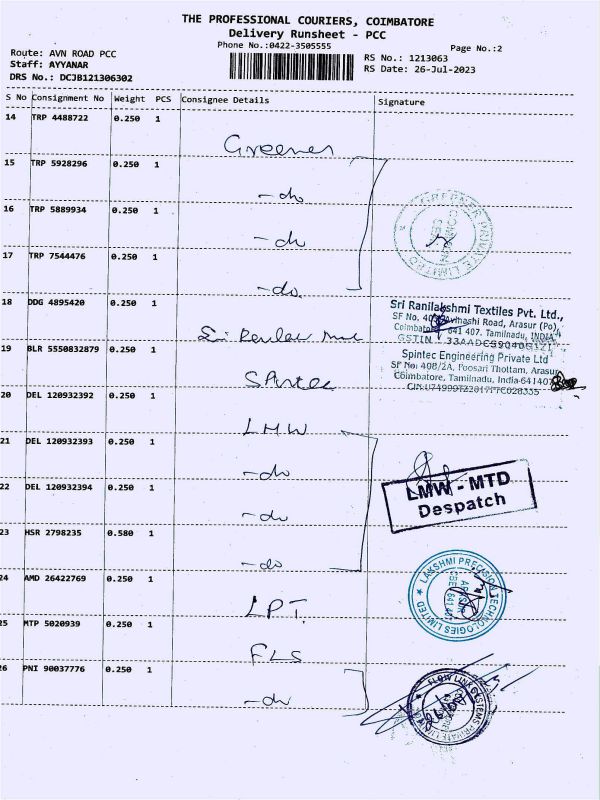 THE PROFESSIONAL COURIERS, COIMBATORE
Delivery Runsheet - PCC
Phone No.:0422-3505555
Page No.:2
Route: AVN ROAD PCC
Staff: AYYANAR
DRS No.: DCJB121306302
RS No.: 1213063
RS Date: 26-Jul-2023
S No Consignment No Weight PCS Consignee Details Signature
14 TRP 4488722 0.250 1
Greener
15 TRP 5928296 0.250 1
-do
16 TRP 5889934 0.250 1
-do
17 TRP 7544476 0.250 1
-do.
GREENER PRIVATE LIMITED
18 DDG 4895420 0.250 1
Sri
Sri Ranilakshmi Textiles Pvt. Ltd.,
SF No. Avinashi Road, Arasur (Po),
Coimbatore 641 407. Tamilnadu, INDIA
GSTIN - 33AADCS9040G1Z1
19 BLR 5550832879 0.250 1
Spintec
Spintec Engineering Private Ltd
SF No: 408/2A, Poosari Thottam, Arasur
Coimbatore, Tamilnadu, India-641407
20 DEL 120932392 0.250 1
LMW
21 DEL 120932393 0.250 1
-do
22 DEL 120932394 0.250 1
-do
LMW - MTD
Despatch
23 HSR 2798235 0.580 1
-do
24 AMD 26422769 0.250 1
LPT.
LAKSHMI PRECISION TECHNOLOGIES LIMITED
ARASUR
CBE 641 407
25 MTP 5020939 0.250 1
FLS
26 PNI 90037776 0.250 1
-do
FLOW LINK SYSTEMS PRIVATE LIMITED